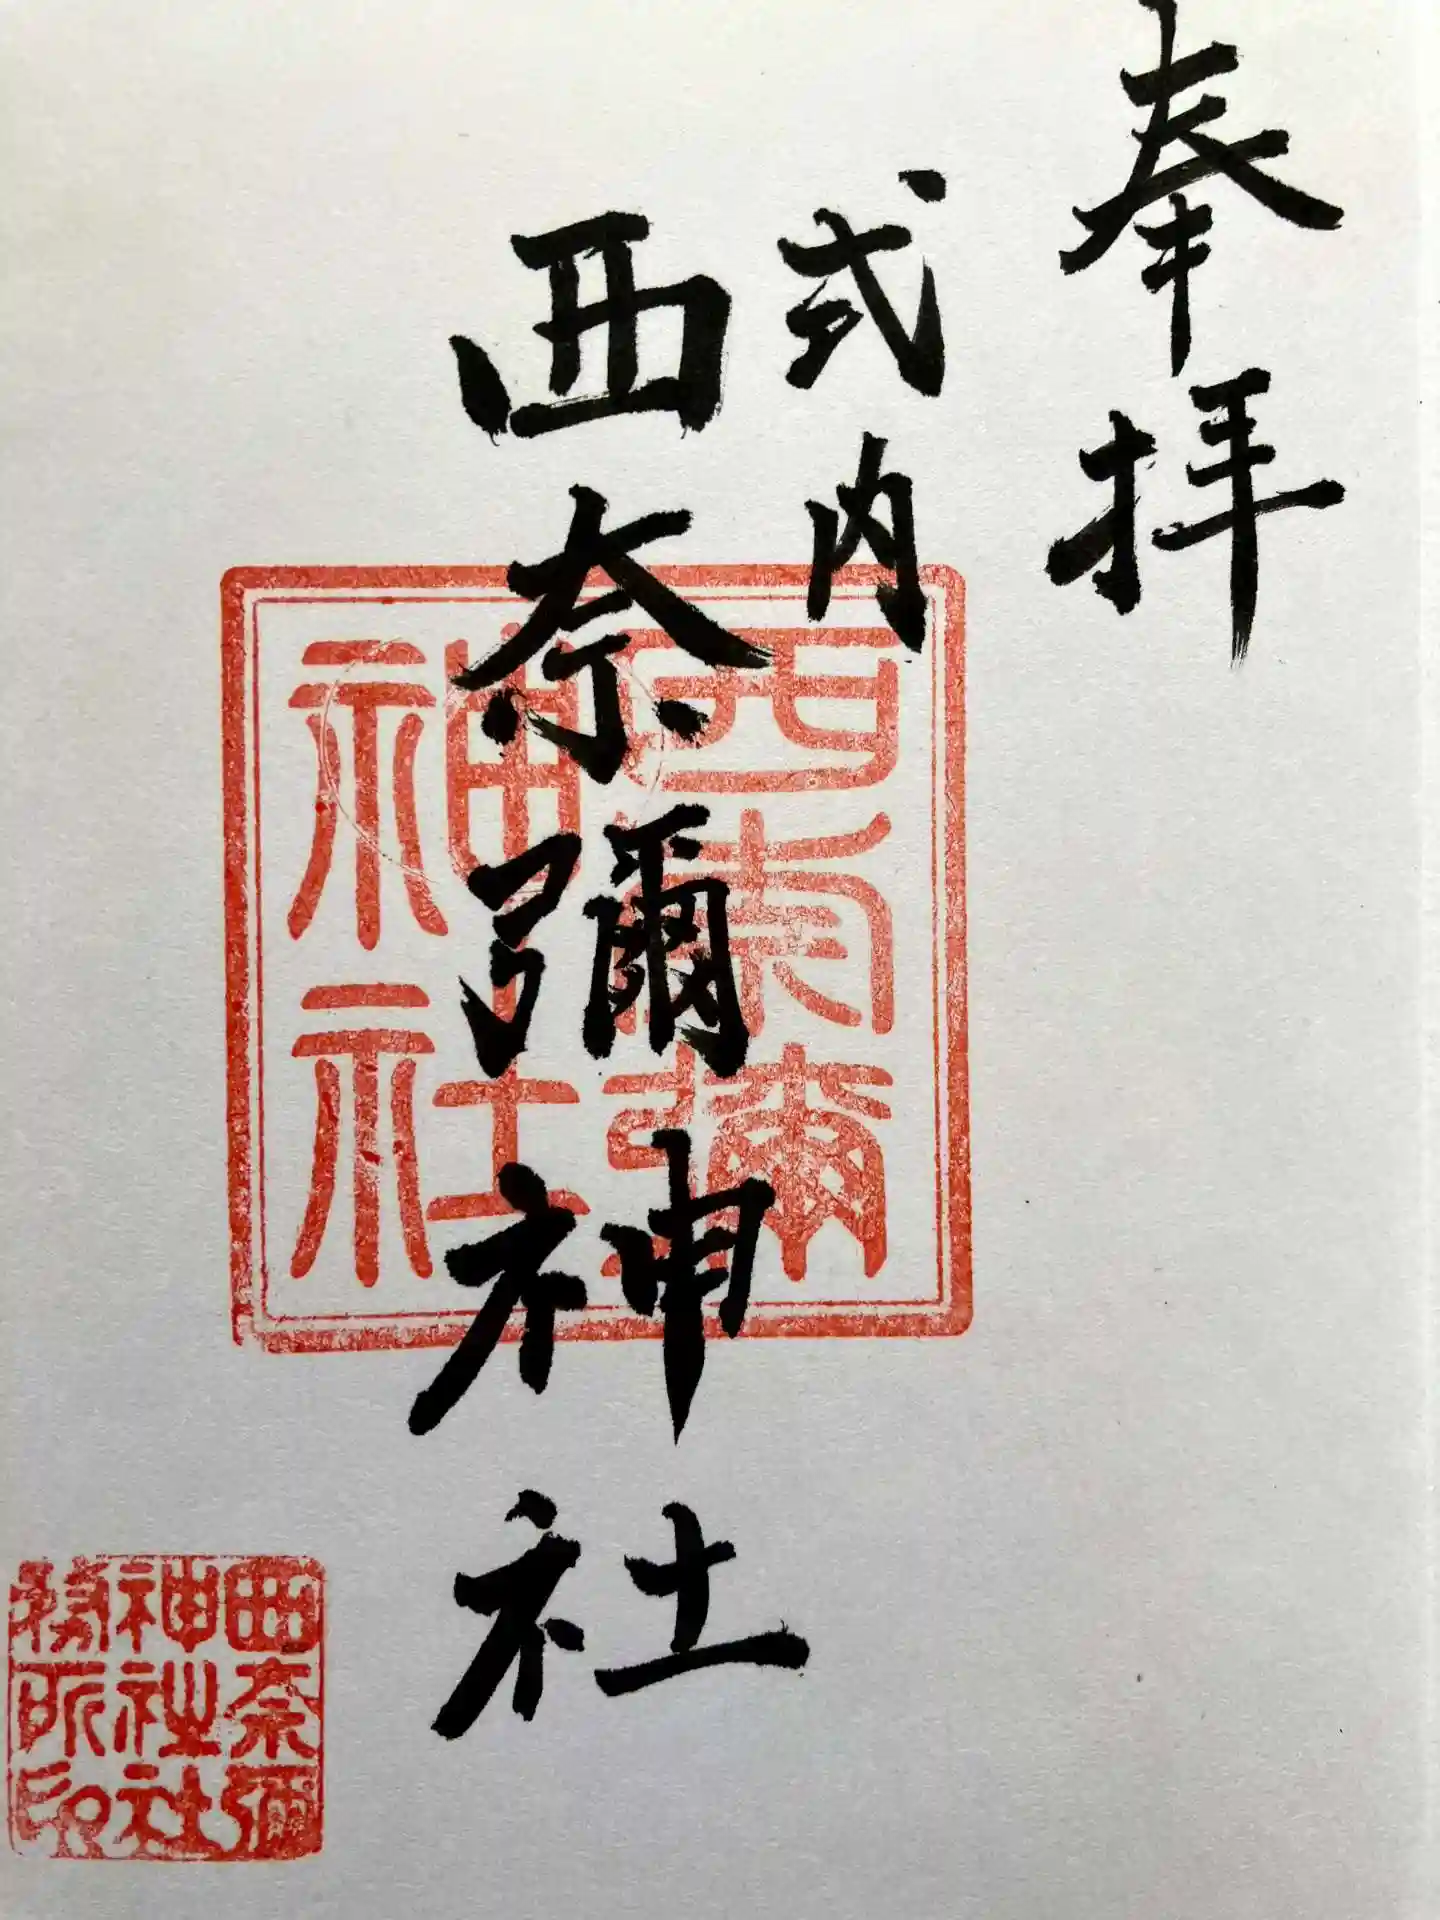 奉拝
式内
西奈彌神社
西奈彌
神社
西奈彌
神社社
務所印